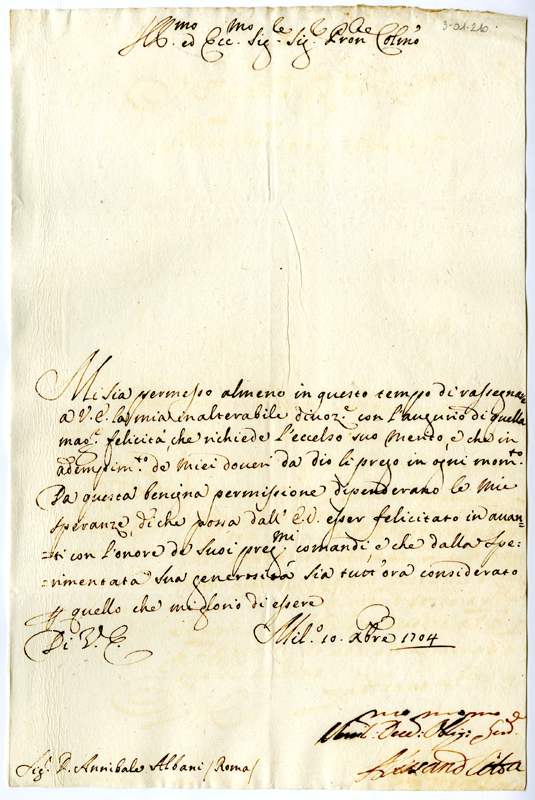 3-01-210
Ill.mo ed Ecc.mo Sig.le Sig.le Pron Colmo
Mi sia permesso almeno in questo tempo di rassegnare
a V. E. la mia inalterabile divoz.e con l'augurio di quella
mag.r felicità, che richiede l'eccelso suo merito, e che in
adempim.to de miei doveri da Dio li prego in ogni mom.to.
Da questa benigna permissione dipenderano le mie
speranze, di che possa dall' E. V. esser felicitato in avan=
=ti con l'onore de suoi preg.mi comandi e che dalla spe=
=rimentata sua generosità sia tutt'ora considerato
quello che mi glorio di essere
Di V. E. Mil.o 10. Xbre 1704
Umil.mo Dev.mo Oblig.mo Serd.
Sig.r D. Annibale Albani / Roma /